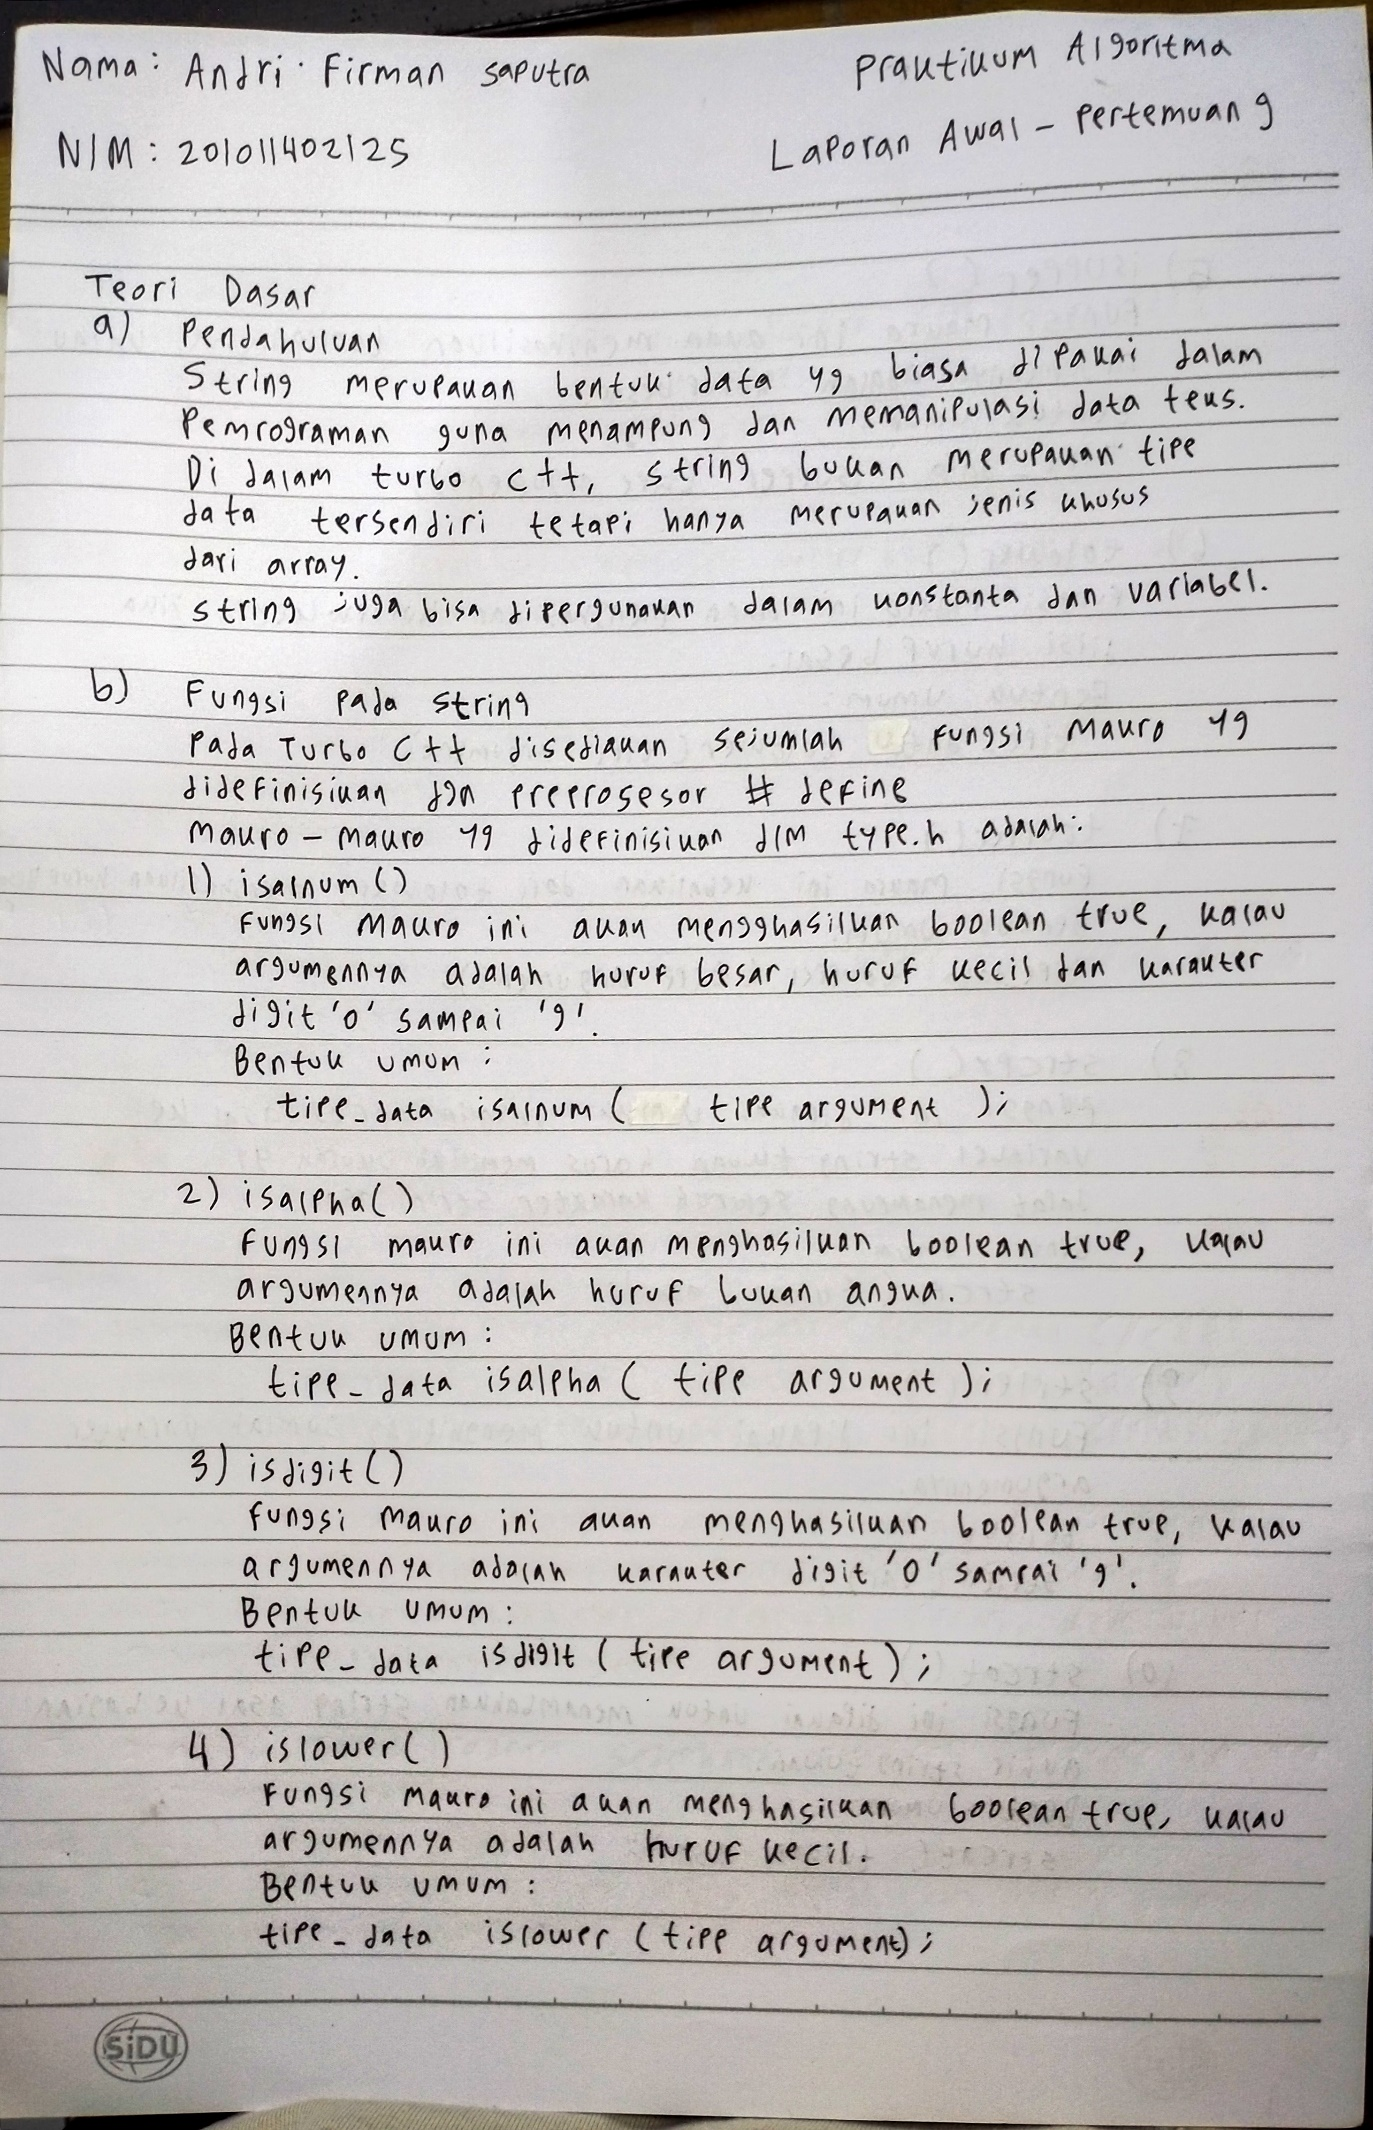 Nama : Andri Firman Saputra
Praktikum Algoritma
NIM : 201011402125
Laporan Awal - Pertemuan 9
Teori Dasar
a) Pendahuluan
String merupakan bentuk data yg biasa dipakai dalam
Pemrograman guna menampung dan memanipulasi data teks.
Di dalam turbo C++, string bukan merupakan tipe
data tersendiri tetapi hanya merupakan jenis khusus
dari array.
String juga bisa dipergunakan dalam konstanta dan variabel.
b) Fungsi pada string
Pada Turbo C++ disediakan sejumlah fungsi makro yg
didefinisikan dgn preprosesor # define
Makro - makro yg didefinisikan dlm type.h adalah:
1) isalnum ()
Fungsi Makro ini akan mengghasilkan boolean true, kalau
argumennya adalah huruf besar, huruf kecil dan karakter
digit '0' sampai '9'.
Bentuk umum :
tipe_data isalnum ( tipe argument );
2) isalpha()
Fungsi makro ini akan menghasilkan boolean true, kalau
argumennya adalah huruf bukan angka.
Bentuk umum :
tipe_data isalpha ( tipe argument );
3) isdigit ()
Fungsi Makro ini akan menghasilkan boolean true, kalau
argumennya adalah karakter digit '0' sampai '9'.
Bentuk umum :
tipe_data isdigit ( tipe argument ) ;
4) islower()
Fungsi Makro ini akan menghasilkan boolean true, kalau
argumennya adalah huruf kecil.
Bentuk umum :
tipe_data islower ( tipe argument) ;
SiDU